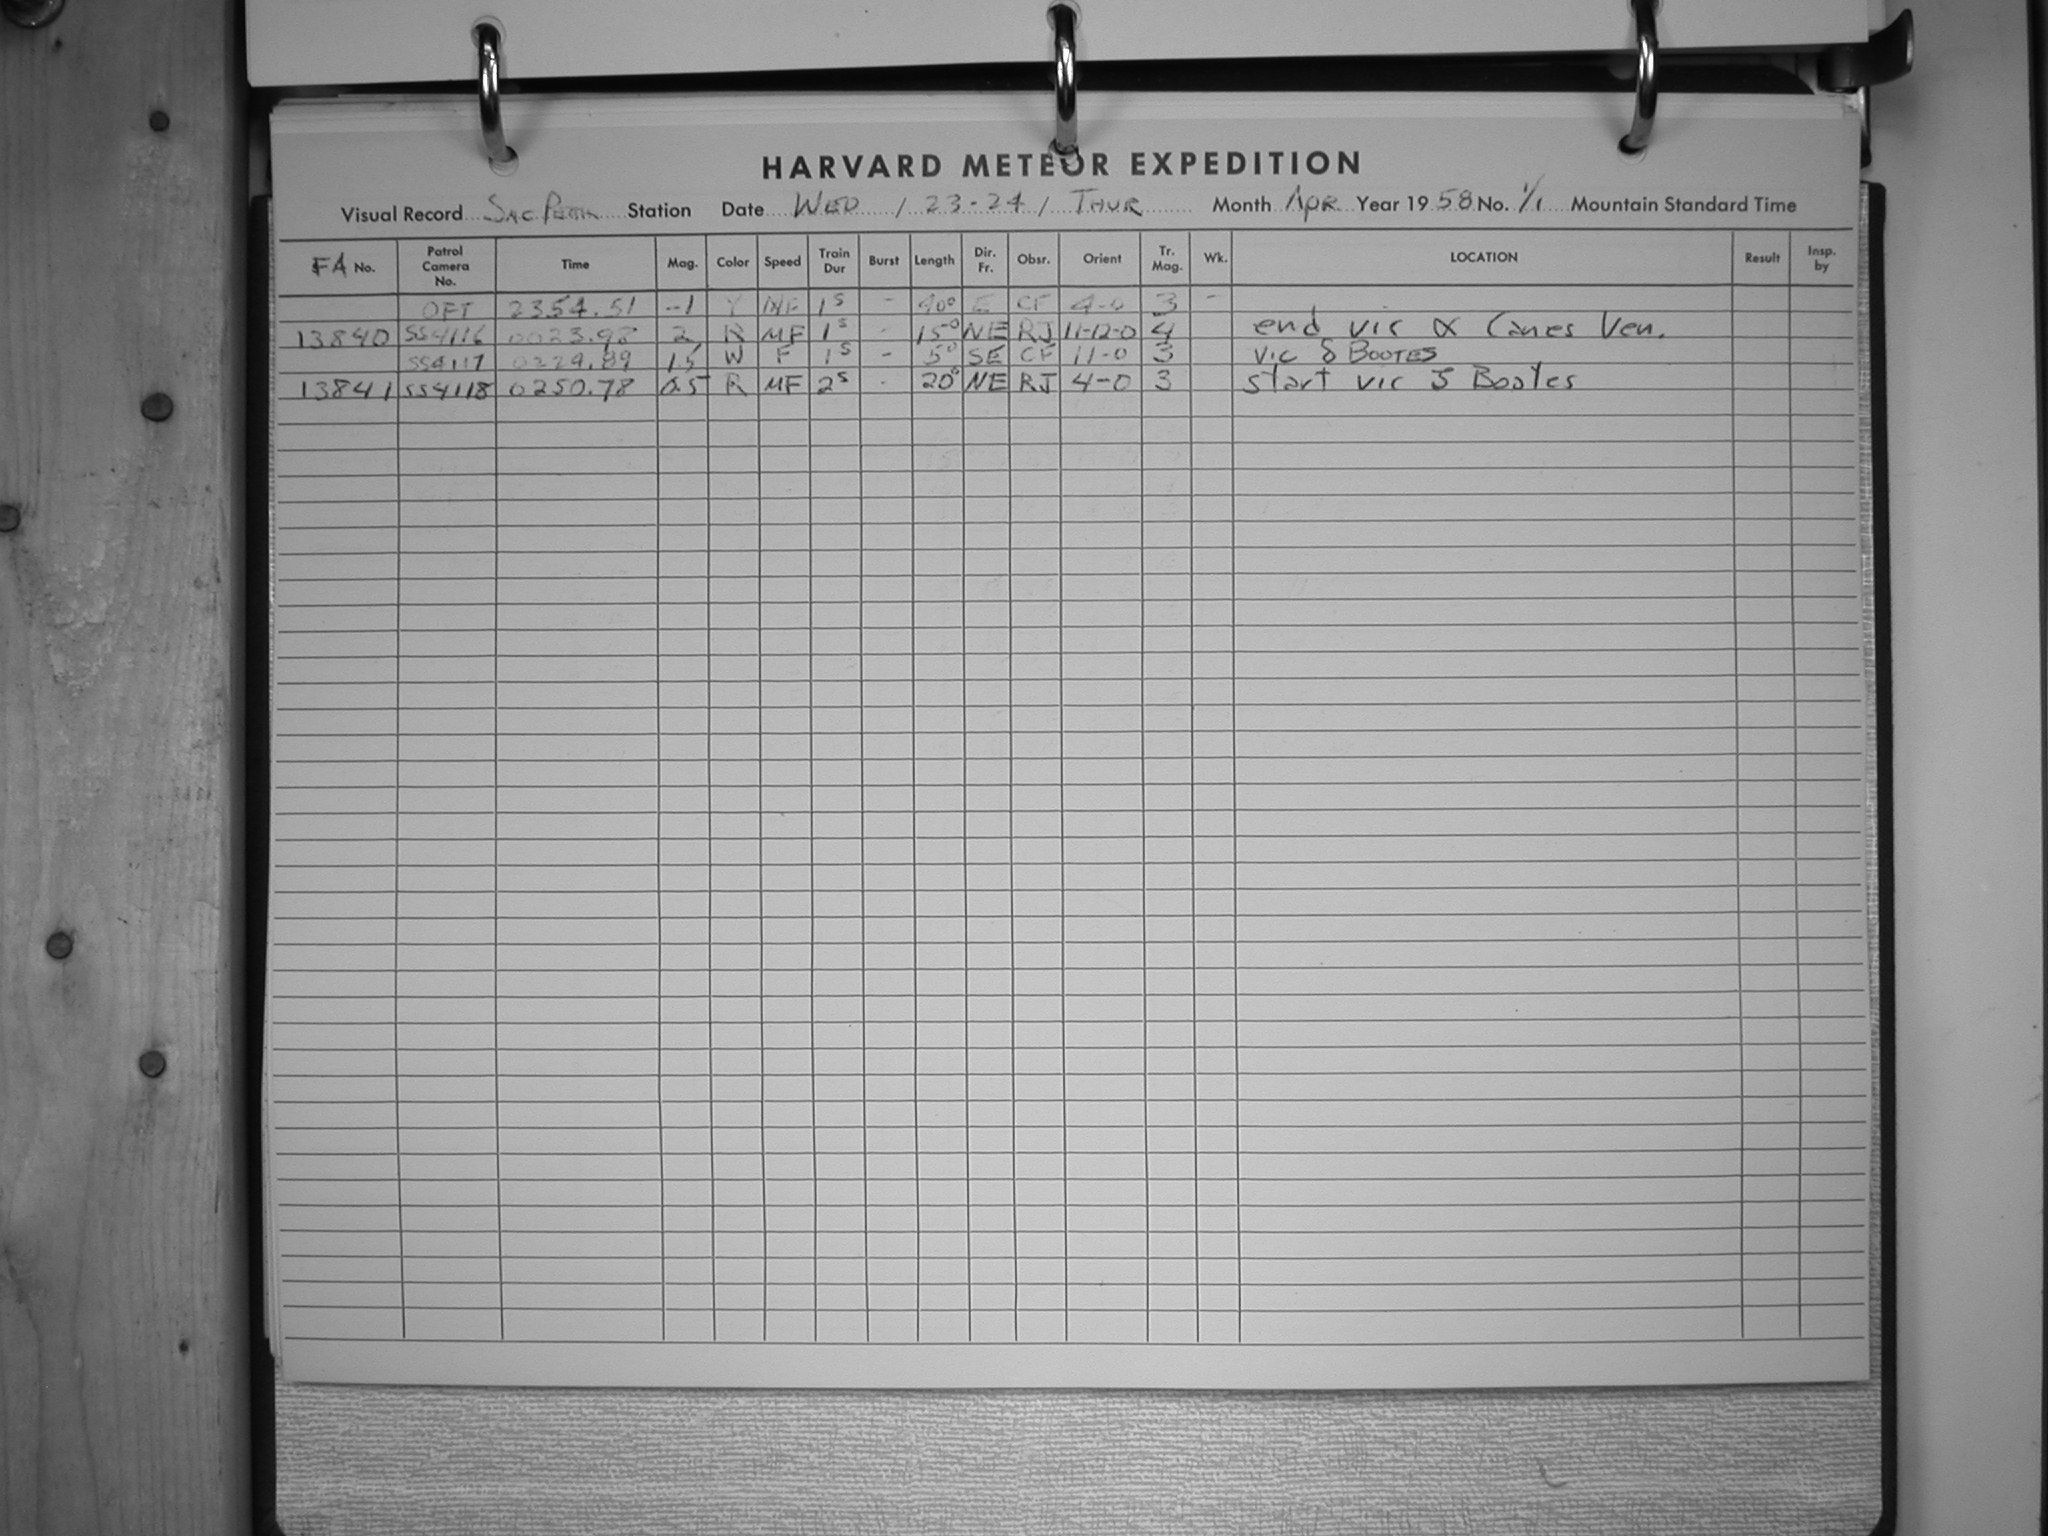 HARVARD METEOR EXPEDITION
Visual Record Sac Peak Station Date WED / 23-24 / THUR Month Apr Year 1958 No. 1/1 Mountain Standard Time
FA No. Patrol Camera No. Time Mag. Color Speed Train Dur Burst Length Dir. Fr. Obsr. Orient Tr. Mag. Wk. LOCATION Result Insp. by
OFT 2354.51 -1 Y MF 1s - 40° E CF 4-0 3 -
13840 SS4116 0023.98 2 R MF 1s - 15° NE RJ 11-12-0 4 end vic α Canes Ven.
SS4117 0229.89 1.5 W F 1s - 5° SE CF 11-0 3 vic δ BOOTES
13841 SS4118 0250.78 0.5 R MF 2s - 20° NE RJ 4-0 3 start vic Bootes